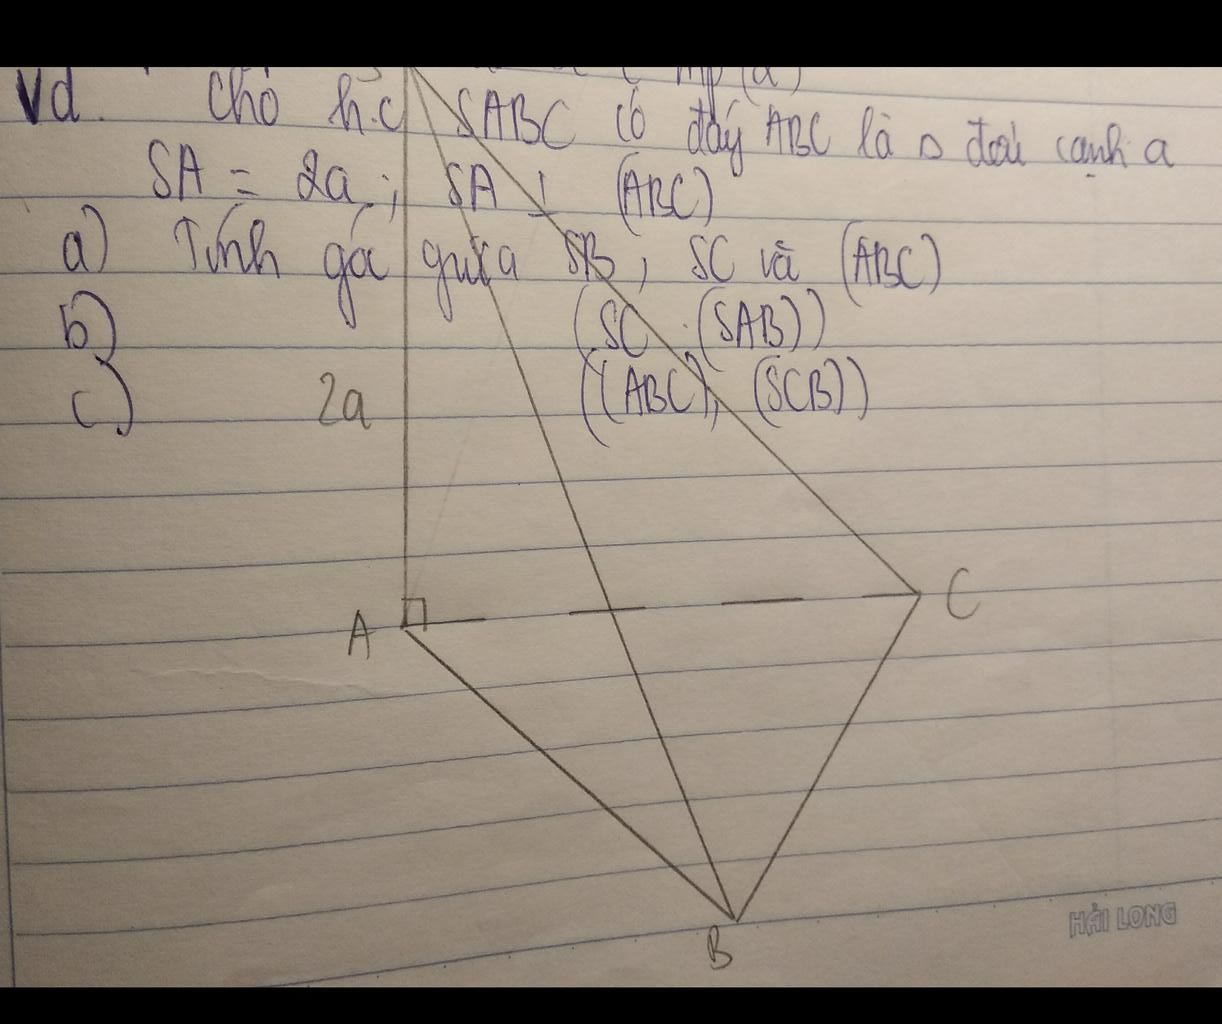 mp (α)
Vd. Cho h.c SABC có đáy ABC là Δ đều cạnh a
SA = 2a; SA ⊥ (ABC)
a) Tính góc giữa SB, SC và (ABC)
b) (SC, (SAB))
c) ((ABC), (SCB))
2a
A
C
B
HẢI LONG